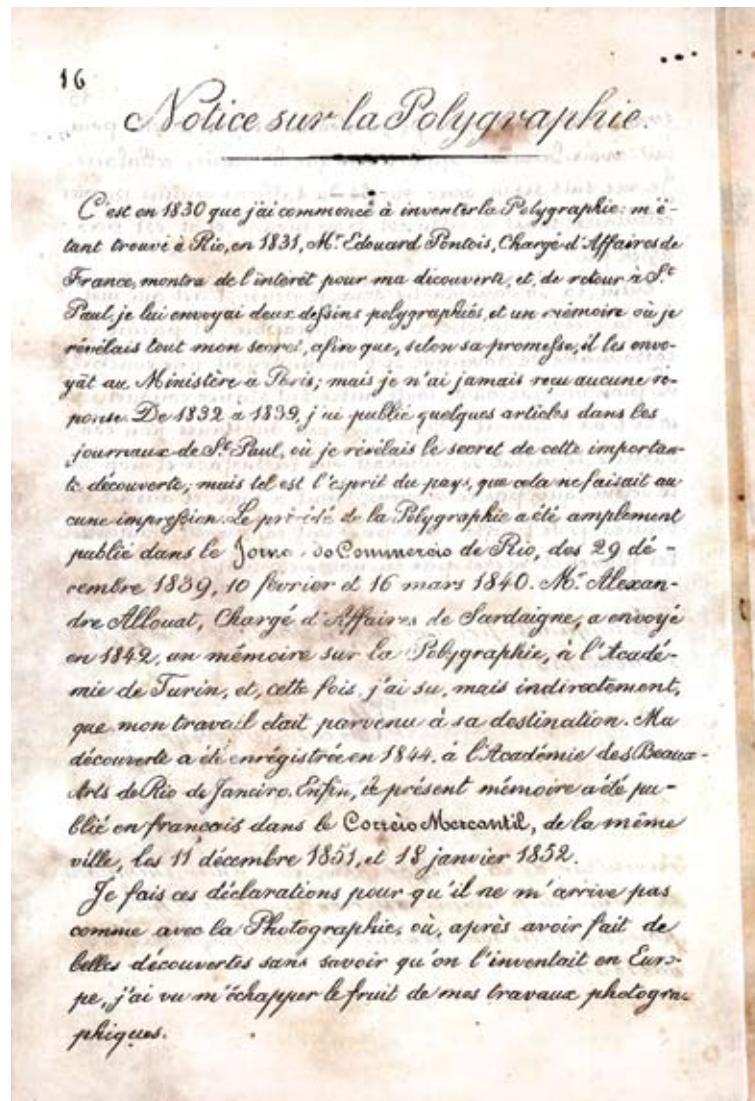 16
Notice sur la Polygraphie.
C'est en 1830 que j'ai commencé à inventer la Polygraphie: m'é-
tant trouvé à Rio, en 1831, Mr. Edouard Pontois, Chargé d'Affaires de
France, montra de l'interêt pour ma découverte, et, de retour à St.
Paul, je lui envoyai deux dessins polygraphiés, et un mémoire où je
révélais tout mon secret, afin que, selon sa promesse, il les envo-
yât au Ministère à Paris; mais je n'ai jamais reçu aucune ré-
ponse. De 1832 a 1839, j'ai publié quelques articles dans les
journaux de St. Paul, où je révélais le secret de cette importan-
te découverte; mais tel est l'esprit du pays, que cela ne faisait au
cune impression. Le procédé de la Polygraphie a été amplement
publié dans le Jornal do Commercio de Rio, des 29 dé-
cembre 1839, 10 février et 16 mars 1840. Mr. Alexan-
dre Allouat, Chargé d'Affaires de Sardaigne, a envoyé
en 1842, un mémoire sur la Polygraphie, à l'Acadé-
mie de Turin, et, cette fois j'ai su, mais indirectement,
que mon travail était parvenu à sa destination. Ma
découverte a été enrégistrée en 1844. à l'Académie des Beaux-
Arts de Rio de Janeiro. Enfin, le présent mémoire a été pu-
blié en français dans le Correio Mercantil, de la même
ville, les 11 décembre 1851, et 18 janvier 1852.
Je fais ces déclarations pour qu'il ne m'arrive pas
comme avec la Photographie, où, après avoir fait de
belles découvertes sans savoir qu'on l'inventait en Euro-
pe, j'ai vu m'échapper le fruit de mes travaux photogra-
phiques.